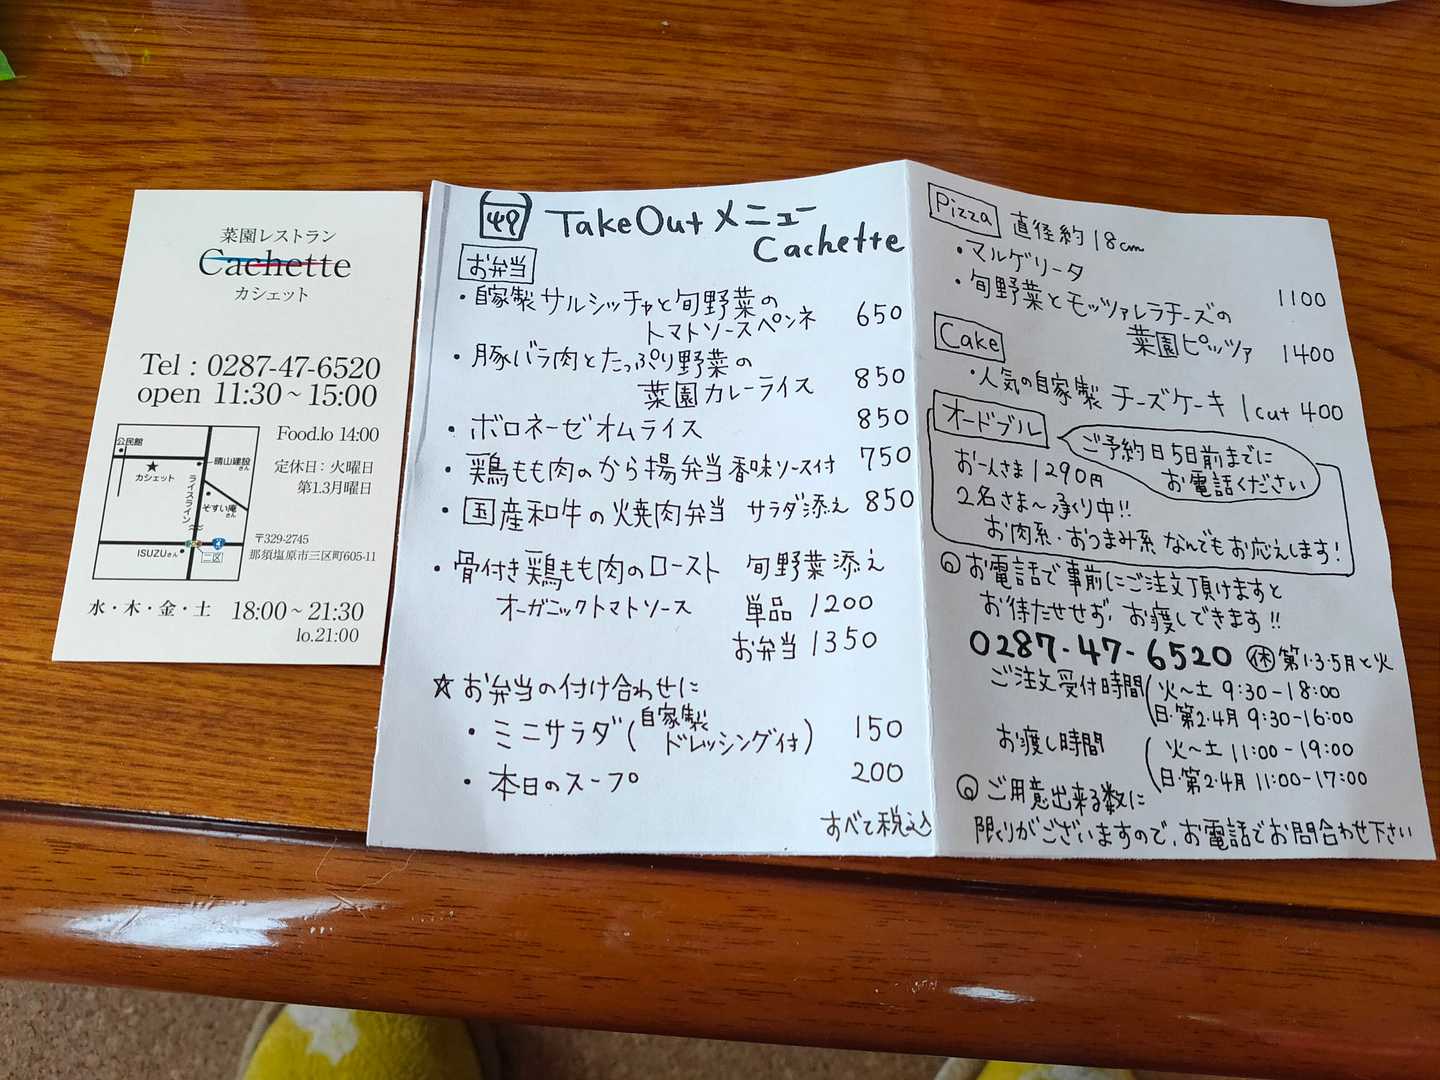 菜園レストラン
Cachette
カシェット
Tel : 0287-47-6520
open 11:30～15:00
Food.lo 14:00
定休日：火曜日
第1.3月曜日
公民館
★
カシェット
晴山建設さん
ライスライン
そすい庵さん
ISUZUさん
4
二区
〒329-2745
那須塩原市三区町605-11
水・木・金・土 18:00～21:30
lo.21:00
TakeOutメニュー
Cachette
お弁当
・自家製サルシッチャと旬野菜の
トマトソースペンネ 650
・豚バラ肉とたっぷり野菜の
菜園カレーライス 850
・ボロネーゼオムライス 850
・鶏もも肉のから揚弁当 香味ソース付 750
・国産和牛の焼肉弁当 サラダ添え 850
・骨付き鶏もも肉のロースト 旬野菜添え
オーガニックトマトソース 単品 1200
お弁当 1350
☆お弁当の付け合わせに
・ミニサラダ(自家製ドレッシング付) 150
・本日のスープ 200
すべて税込
Pizza 直径約18cm
・マルゲリータ 1100
・旬野菜とモッツァレラチーズの
菜園ピッツァ 1400
Cake
・人気の自家製 チーズケーキ 1cut 400
オードブル
ご予約日5日前までに
お電話ください
お一人さま1290円
2名さま～承り中!!
お肉系・おつまみ系 なんでもお応えします!
お電話で事前にご注文頂けますと
お待たせせず、お渡しできます!!
0287-47-6520 ㊡第1・3・5月と火
ご注文受付時間(火～土 9:30-18:00
日・第2・4月 9:30-16:00
お渡し時間 (火～土 11:00-19:00
日・第2・4月 11:00-17:00
ご用意出来る数に
限りがございますので、お電話でお問合わせ下さい